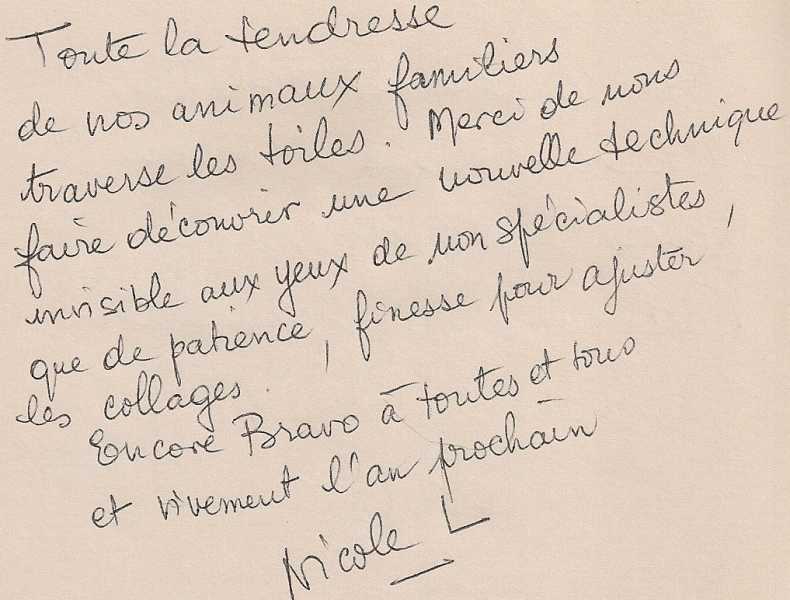 Toute la tendresse
de nos animaux familiers
traverse les toiles. Merci de nous
faire découvrir une nouvelle technique
invisible aux yeux de non spécialistes,
que de patience, finesse pour ajuster
les collages.
Encore Bravo à toutes et tous
et vivement l'an prochain
Nicole L